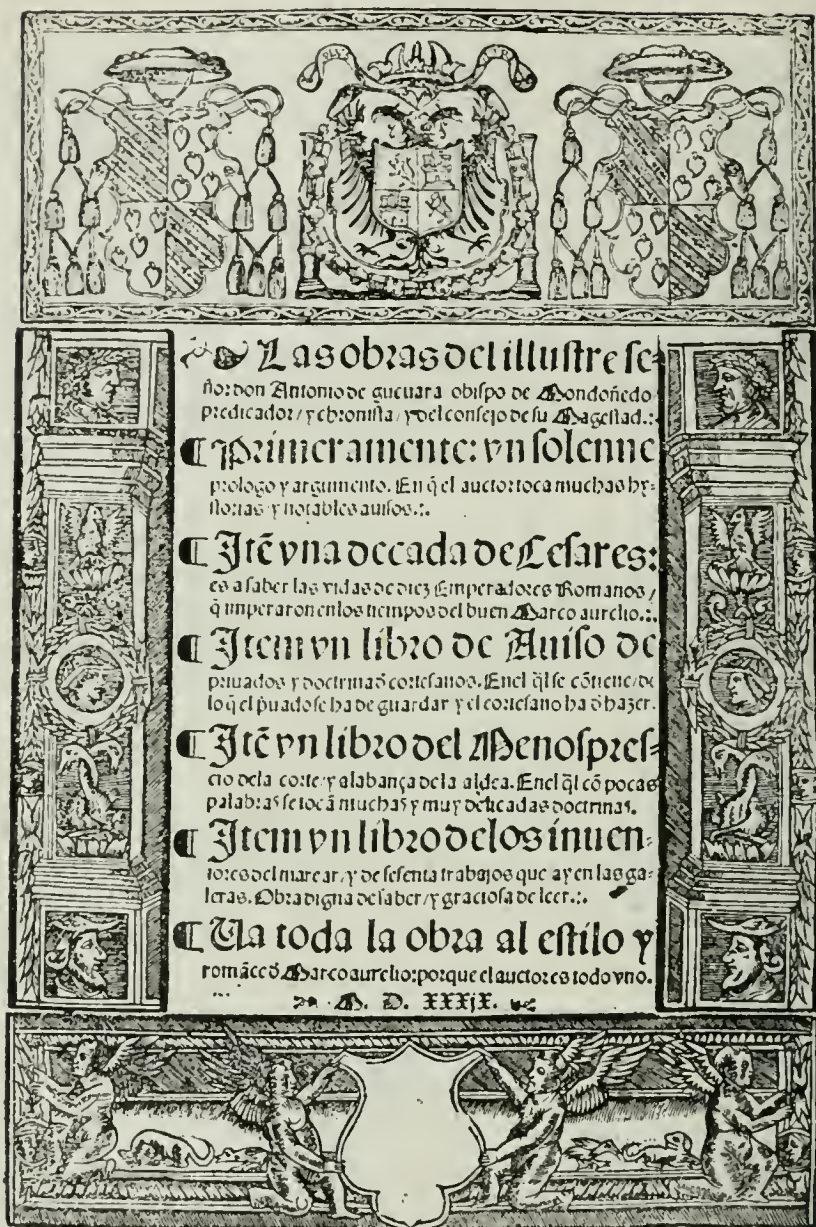 Las obras del illustre se-
ñor don Antonio de gueuara obispo de Mondoñedo
predicador/ y chronista/ y del consejo de su Magestad.:
¶ Primeramente: vn solenne
prologo y argumento. En q̃ el auctor toca muchas hy-
storias y notables auisos.:.
¶ Itẽ vna decada de Cesares:
es a saber las vidas de diez Emperadores Romanos/
q̃ imperaron en los tiempos del buen Marco aurelio.:.
¶ Item vn libro de Auiso de
priuados y doctrina d̃ cortesanos. En el q̃l se cõtiene/ de
lo q̃ el p̃uado se ha de guardar y el cortesano ha d̃ hazer.
¶ Itẽ vn libro del Menospres-
cio dela corte/ y alabança dela aldea. En el q̃l cõ pocas
palabras se tocã muchas y muy delicadas doctrinas.
¶ Item vn libro delos inuen-
tores del marear/ y de sesenta trabajos que ay en las ga-
leras. Obra digna de saber/ y graciosa de leer.:.
¶ Va toda la obra al estilo y
romãce d̃ Marco aurelio: porque el auctor es todo vno.
M. D. XXXjX.